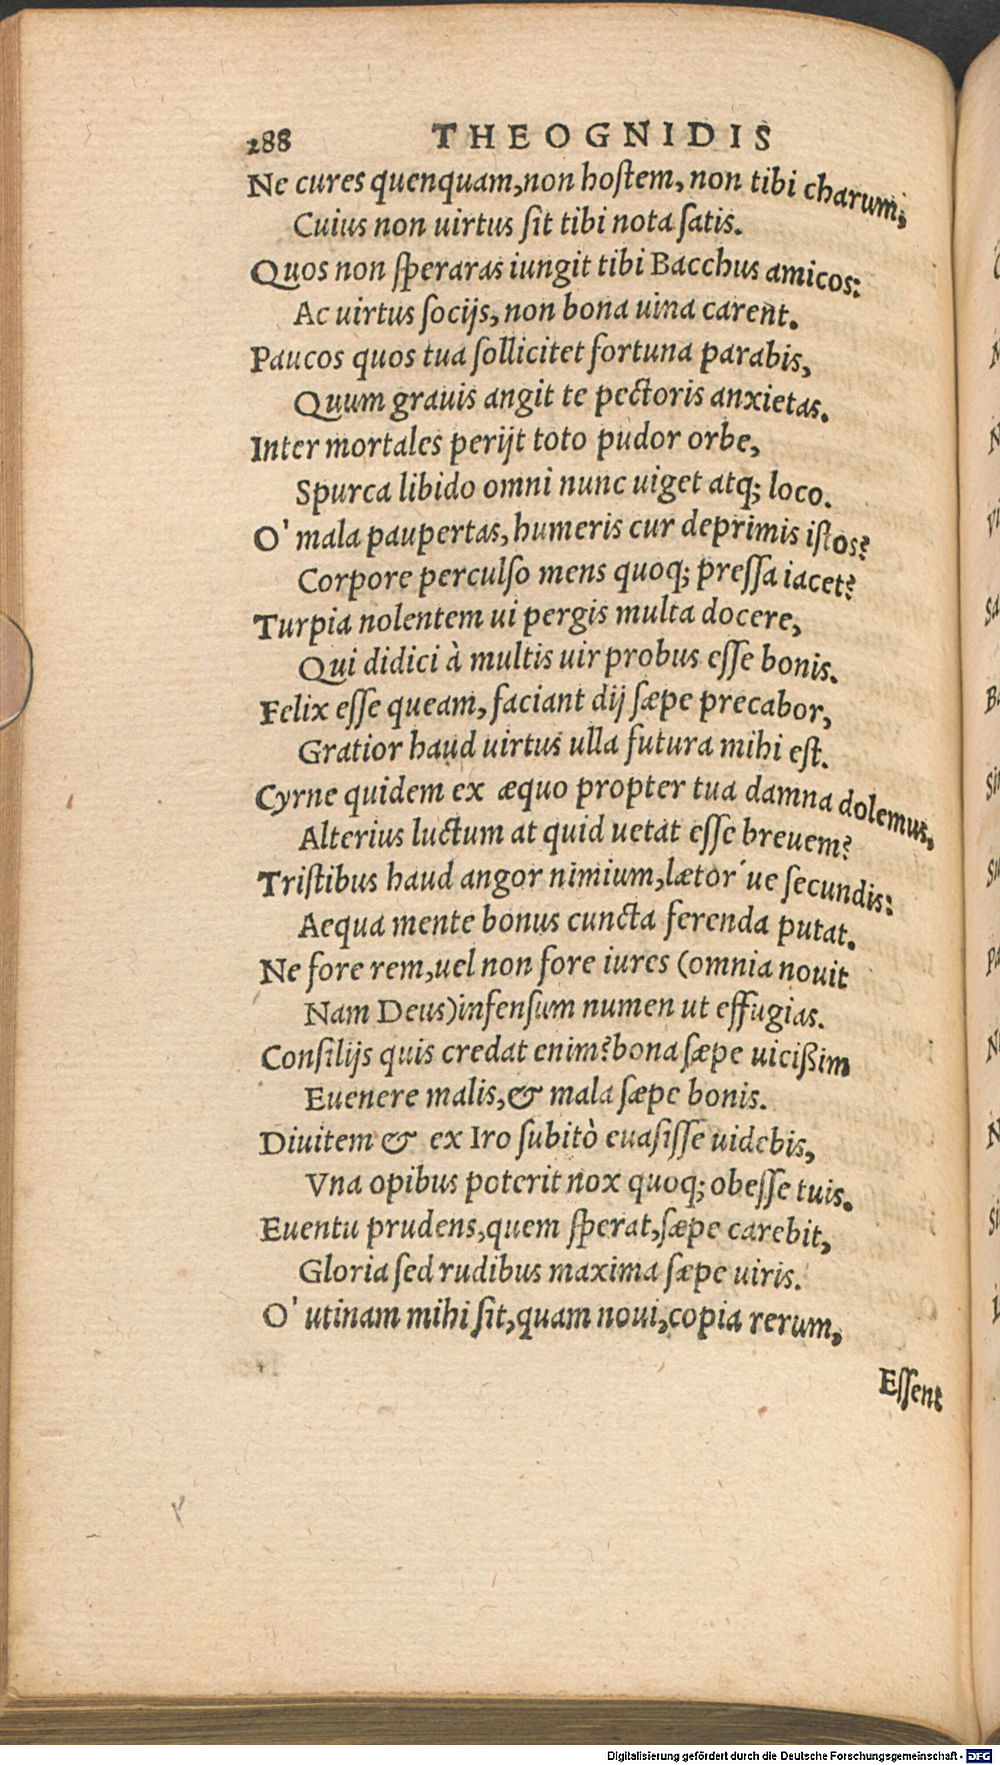 288 THEOGNIDIS
Ne cures quenquam, non hostem, non tibi charum,
Cuius non uirtus sit tibi nota satis.
Quos non speraras iungit tibi Bacchus amicos:
Ac uirtus socijs, non bona uina carent.
Paucos quos tua sollicitet fortuna parabis,
Quum grauis angit te pectoris anxietas.
Inter mortales perijt toto pudor orbe,
Spurca libido omni nunc uiget atq; loco.
O' mala paupertas, humeris cur deprimis istos?
Corpore perculso mens quoq; pressa iacet?
Turpia nolentem ui pergis multa docere,
Qui didici à multis uir probus esse bonis.
Felix esse queam, faciant dij sæpe precabor,
Gratior haud uirtus ulla futura mihi est.
Cyrne quidem ex æquo propter tua damna dolemus,
Alterius luctum at quid uetat esse breuem?
Tristibus haud angor nimium, lætor´ue secundis:
Aequa mente bonus cuncta ferenda putat.
Ne fore rem, uel non fore iures (omnia nouit
Nam Deus) infensum numen ut effugias.
Consilijs quis credat enim? bona sæpe uicißim
Euenere malis, & mala sæpe bonis.
Diuitem & ex Iro subitò euasisse uidebis,
Vna opibus poterit nox quoq; obesse tuis.
Euentu prudens, quem sperat, sæpe carebit,
Gloria sed rudibus maxima sæpe uiris.
O' utinam mihi sit, quam noui, copia rerum,
Essent
Digitalisierung gefördert durch die Deutsche Forschungsgemeinschaft - DFG